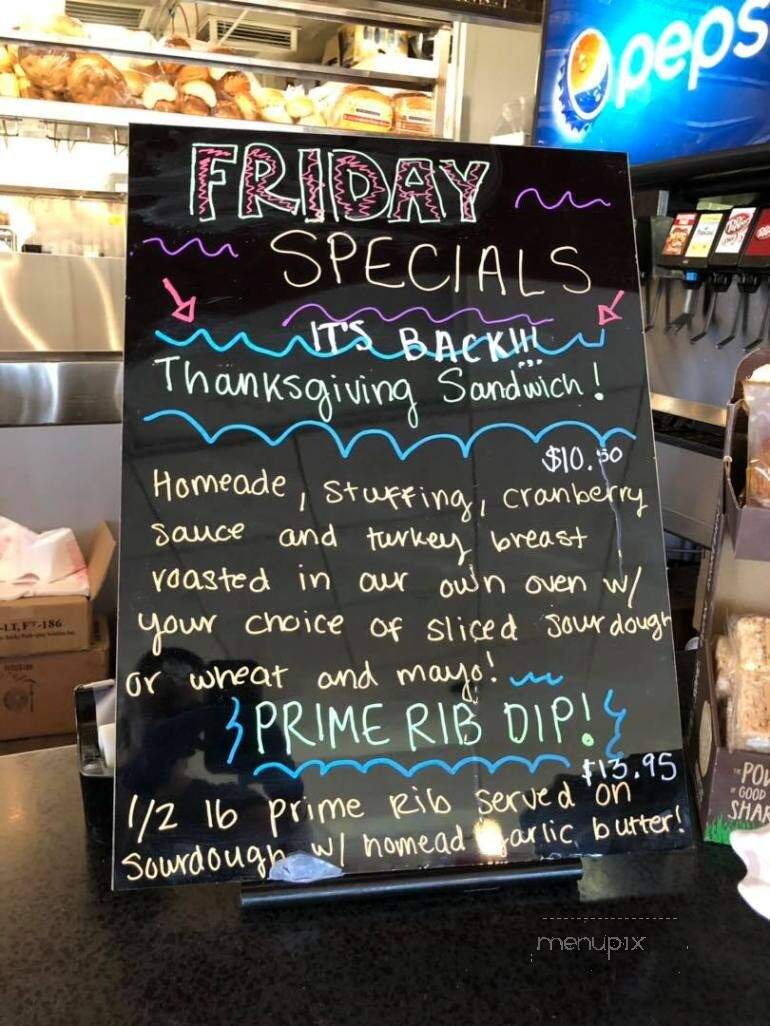 pepsi
FRIDAY
SPECIALS
IT'S BACK!!!
Thanksgiving Sandwich!
$10.50
Homeade, Stuffing, cranberry
sauce and turkey breast
roasted in our own oven w/
your choice of sliced sourdough
or wheat and mayo!
PRIME RIB DIP!
$13.95
1/2 lb prime Rib served on
Sourdough w/ homead garlic butter!
GOOD
menupix